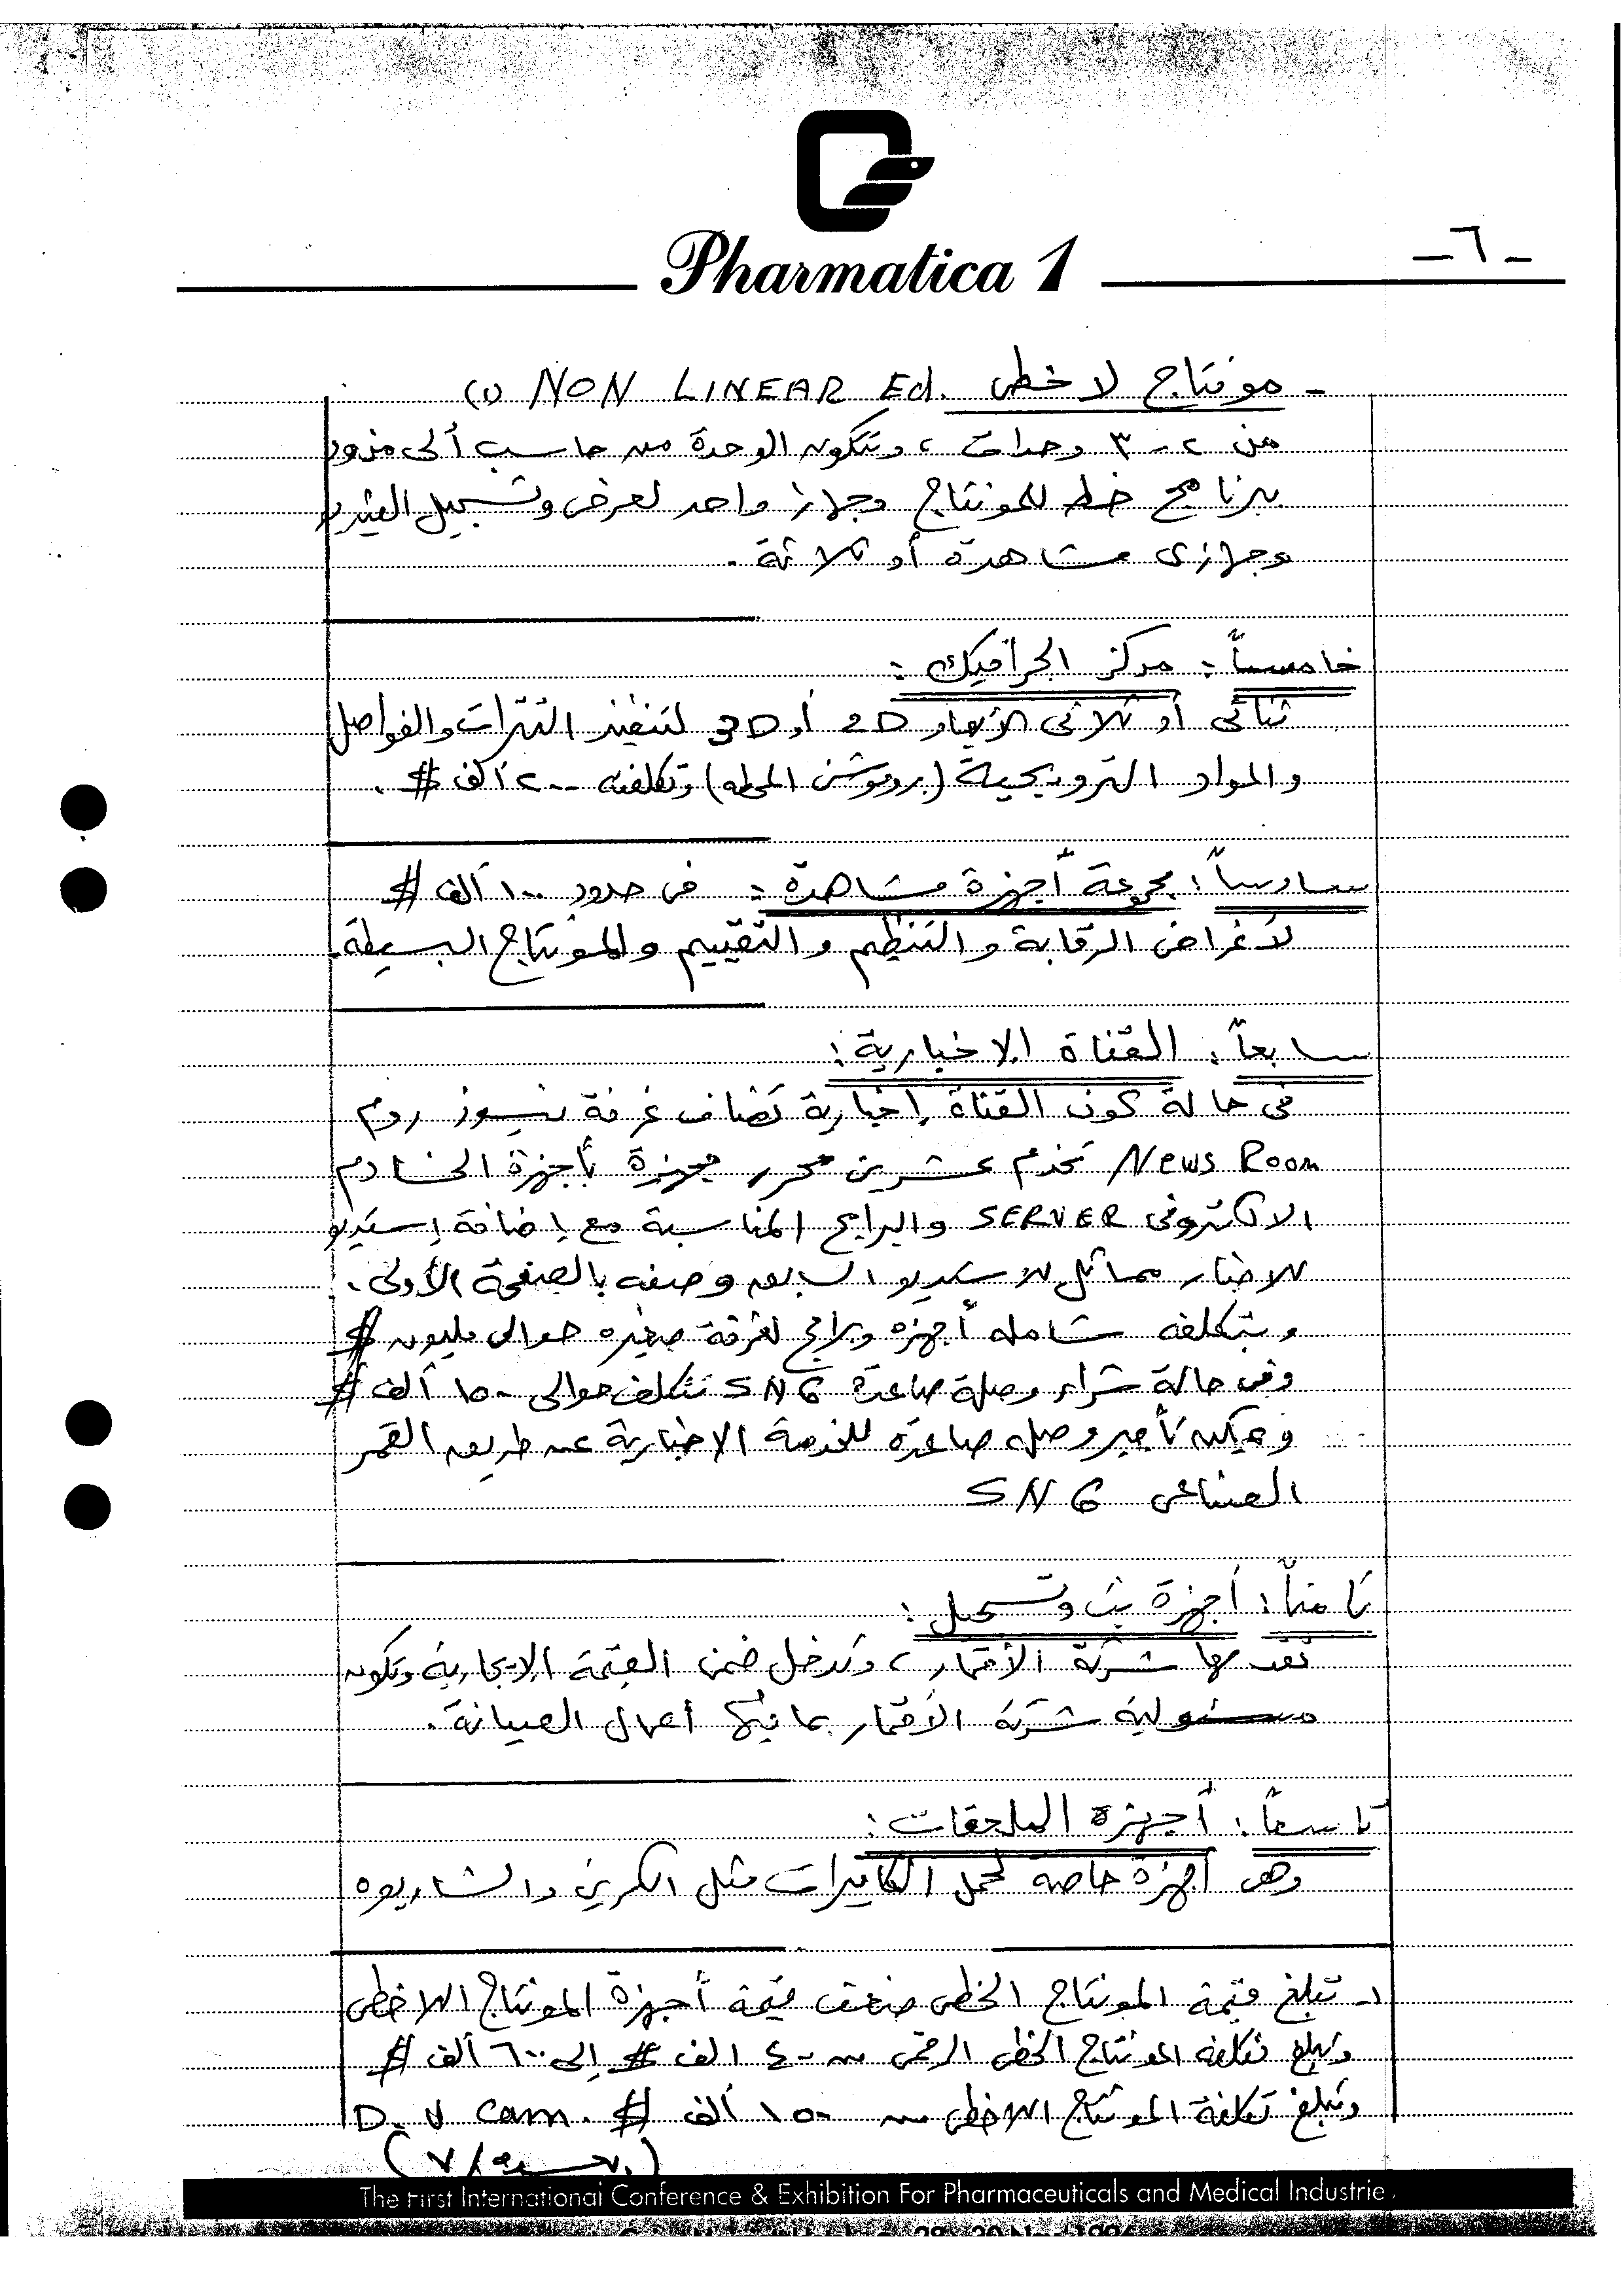 Pharmatica 1
- ٦ -
- مونتاج لا خطى NON LINEAR Ed. (١)
من ٢ - ٣ وحدات ، وتتكون الوحدة من حاسب ألى مزود
ببرنامج خطه للمونتاج وجهاز واحد لعرض وتسجيل الفيديو
وجهازى مشاهدة أو ثلاثة .
خامساً : مركز الجرافيك :
ثنائى أو ثلاثى الأبعاد 2D أو 3D لتنفيذ التترات والفواصل
والمواد الترويجية (بروموشن المحطه) وتكلفته ٢٠٠ ألف $ .
سادساً : مجموعة أجهزة مشاهدة : فى حدود ١٠٠ ألف $
لأغراض الرقابة والتنظيم والتقييم والمونتاج البسيطة .
سابعاً : القناة الإخبارية :
فى حالة كون القناة إخبارية تضاف غرفة نيوز روم
News Room تخدم عشرين محرر مجهزة بأجهزة الخادم
الالكترونى SERVER والبرامج المناسبة مع إضافة إستديو
للاخبار مماثل للاستديو السابق وصفه بالصفحة الأولى .
وبتكلفه شامله أجهزه وبرامج لغرفة صغيره حوالى مليون $
وفى حالة شراء وصلة صاعدة SNG تتكلف حوالى ١٥٠ ألف $
ويمكن تأجير وصله صاعدة للخدمة الاخبارية عن طريق القمر
الصناعى SNG
ثامناً : أجهزة بث وتسجيل :
تقدمها شركة الأقمار ، وتدخل ضمن القيمة الإيجارية وتكون
مسئولية شركة الأقمار بما فيها أعمال الصيانة .
تاسعاً : أجهزة الملحقات :
وهى أجهزة خاصه لحمل الكاميرات مثل الكرين والشاريوه
١- تبلغ قيمة المونتاج الخطى ضعف قيمة أجهزة المونتاج اللاخطى
وتبلغ تكلفه المونتاج الخطى الرقمى من ٤٠٠ الف $ إلى ٦٠٠ ألف $
وتبلغ تكلفة المونتاج اللاخطى من ١٥٠ ألف $ D.V cam.
The First International Conference & Exhibition For Pharmaceuticals and Medical Industrie